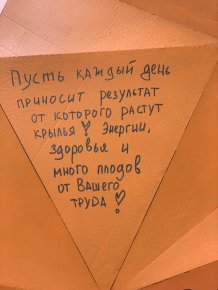 Пусть каждый день
приносит результат
от которого растут
крылья! Энергии,
здоровья и
много плодов
от Вашего
труда!